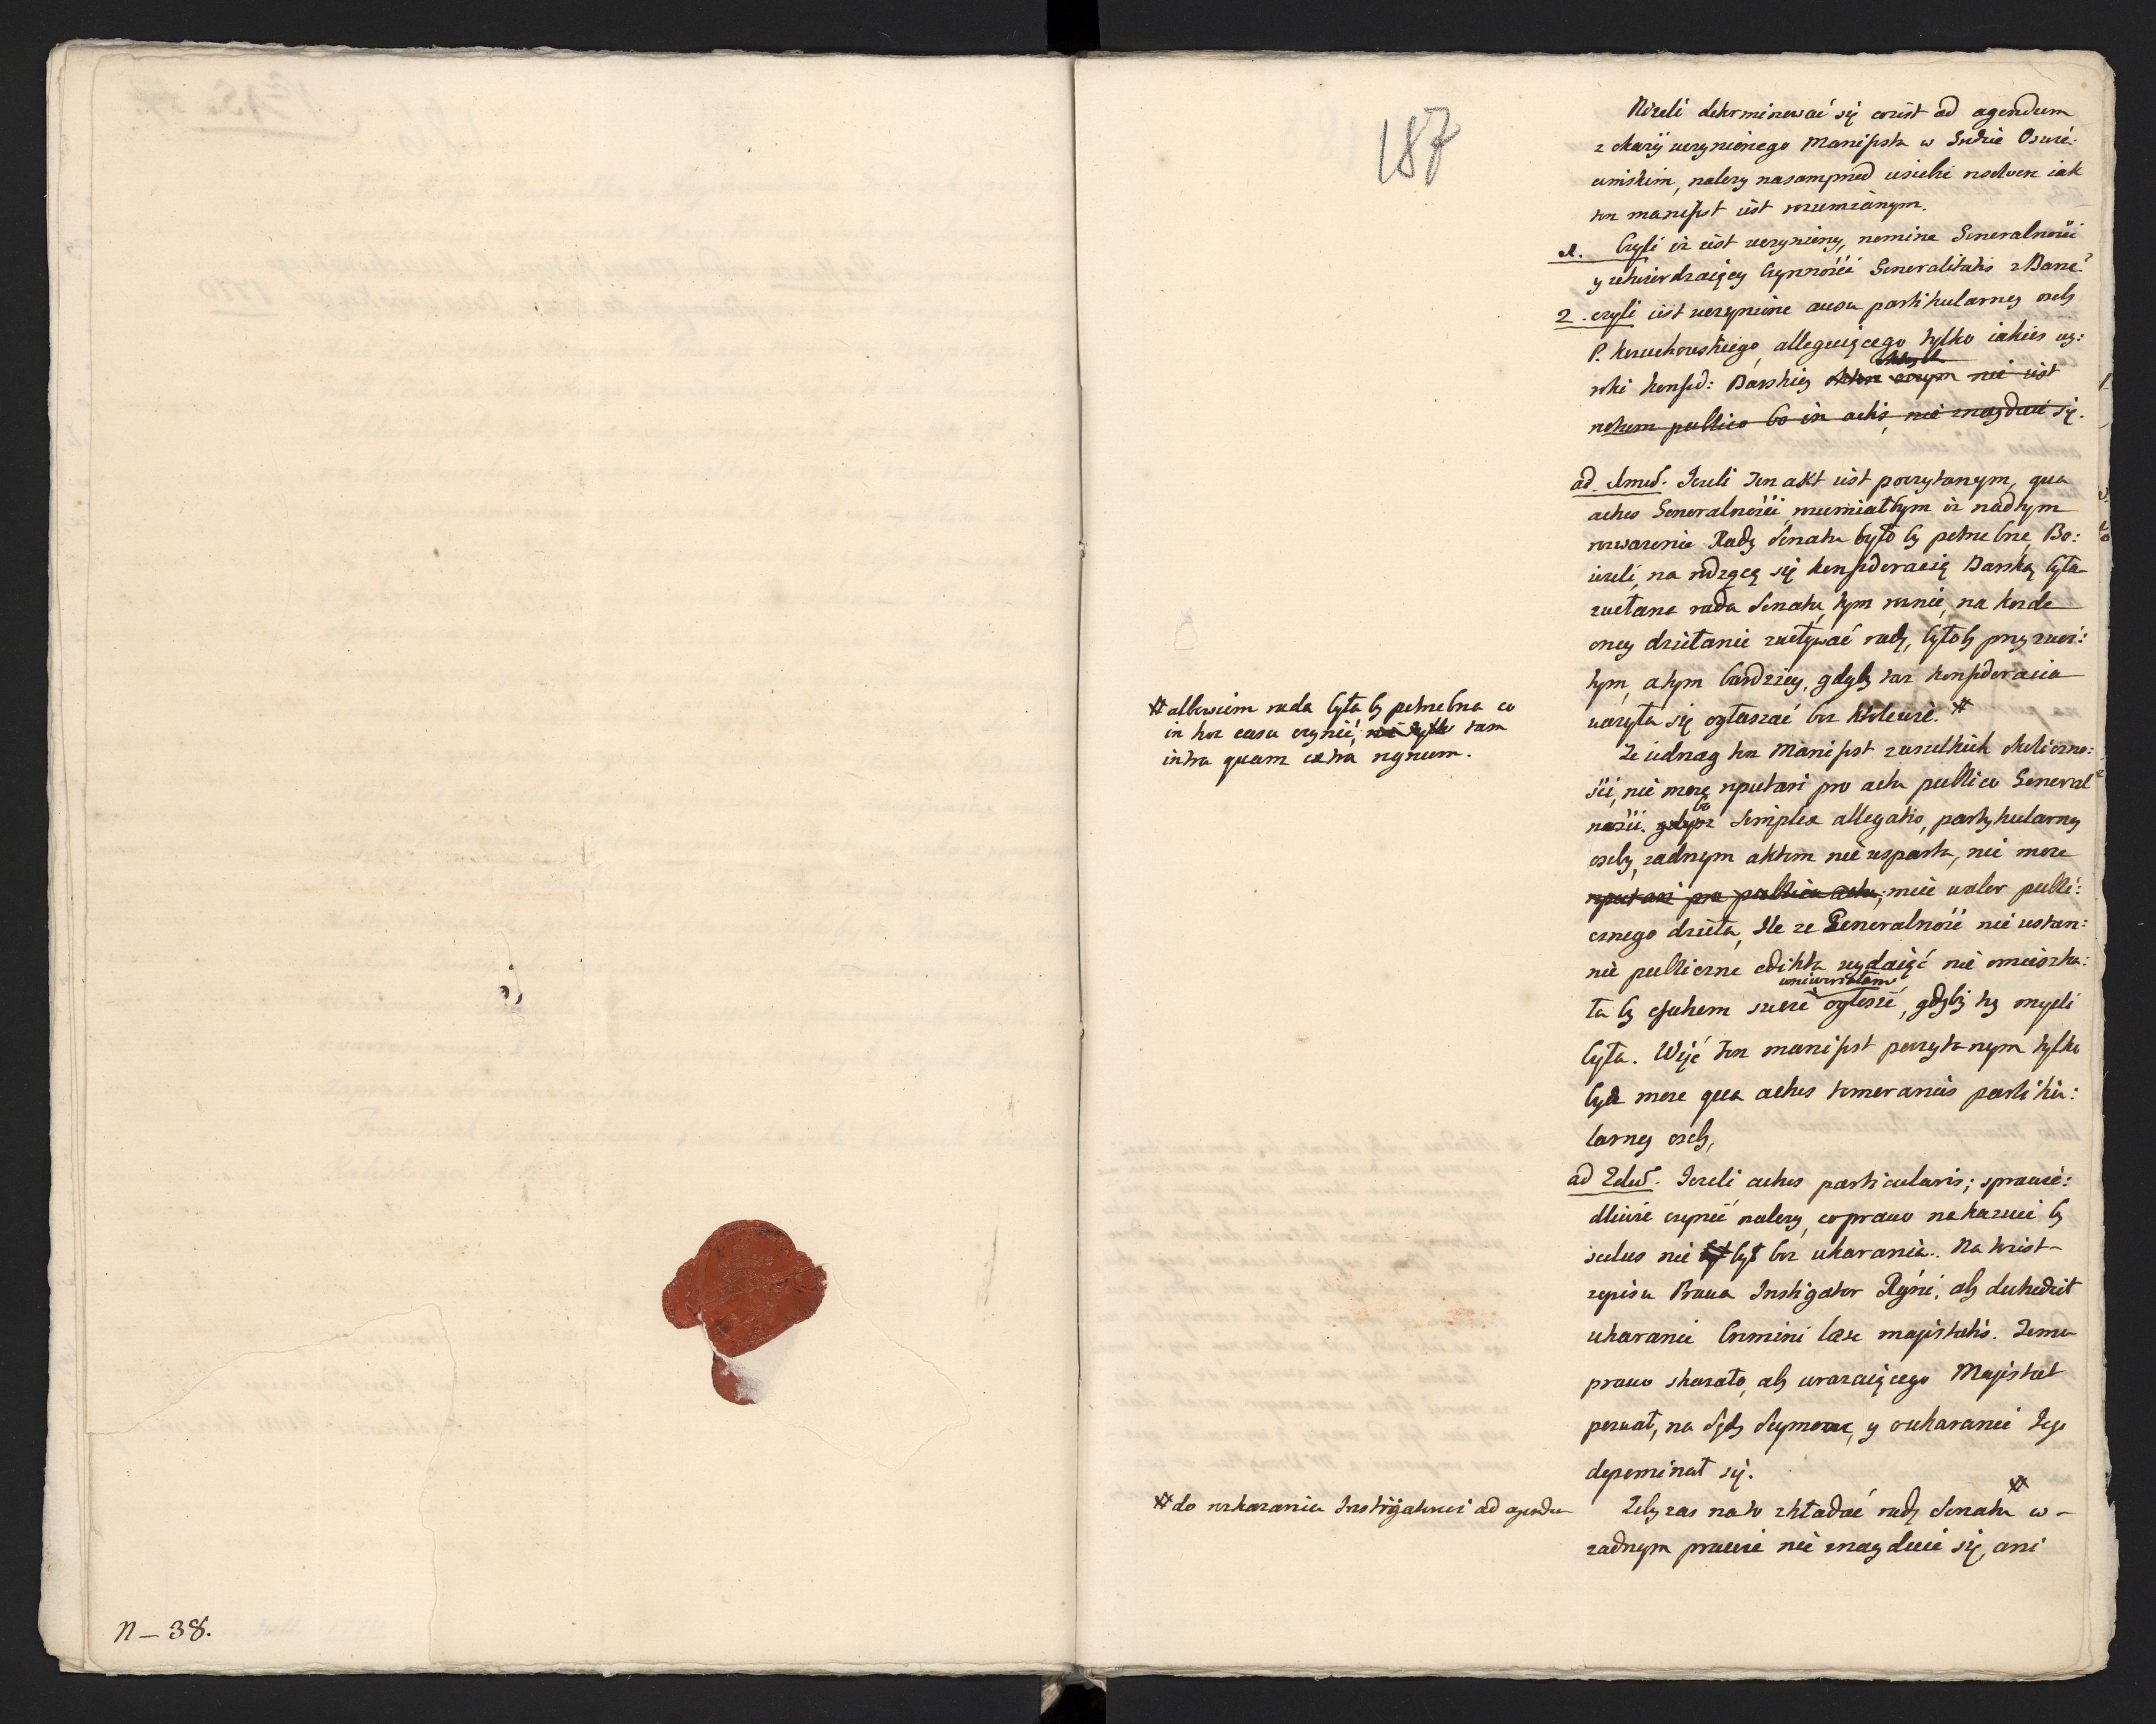 n – 38.
187
Niżeli determinować się coiest ad agendum
z okazÿi uczynionego Manifestu w Grodzie Oswie:
cimskim, należy nasamprzod
ten manifest iest rozumianym.
1. Czyli iż iest uczyniony, nomine Generalności
y utwierdzaiącey Czynności Generalitatis z Bane?
2. czyli iest uczynione ausu partikularney osoby
P. Kozuchowskiego, alleguiącego tylko iakies wy:
roki Konfed: Barskiey nie iest
notum publico bo in actis, nie znayduie się.
ad 1mum. Jezeli Ten akt iest poczytanym, qua
actus Generalności, rozumiałbym iż nad tym
rozwarzenie Rady Senatu było by potrzebne, Bo:
iezeli, na rodzącą się Konfederacią Barską była
zwołana rada Senatu, tym rownie, na kozde
oney działanie zwoływać rady, byłoby przyzwoi:
tym, atym bardziey, gdyby taz Konfederacia
wazyła się ogłaszać bez Krolewie. #
# albowiem rada byłaby potrzebna co
in hoc casu czynić, nie tylko tam
intra quam extra regnum.
Ze iednag ten Manifest z wszelkich okoliczno:
ści, nie może reputari pro actu publico General
ności. gdysz bo Simplex allegatio, partykularney
osoby, zadnym aktem nie wsparta, nie moze
reputari pro publico actu, mieć walor publi:
cznego dzieła, Ile ze Generalność nie ustan:
nie publiczne edikta wydaiąć nie omieszka:
ła by uniwersałem ogłosić, gdyby tey mysli
była. Więć Ten manifest poczytanym tylko
bydz moze qua actus temerarius partiku:
larney osoby,
ad 2dum. Jezeli actus particularis; sprawie:
dliwie czynić należy, co prawo nakazuie by
scelus nie był bez ukarania. Na to iest
z opisu Prawa Instigator Regni, aby dochodził
ukaranie Crimini læsæ majestatis. Temu
prawo skazało, aby urazaiącego Majestat
pozwał, na sądy Seymowe, y o ukaranie Jego
dopominał się.
Zeby zas na to składać rady Senatu # w –
zadnym prawie nie znayduie się, ani
# do rozkazania Instigatorowi ad agendum